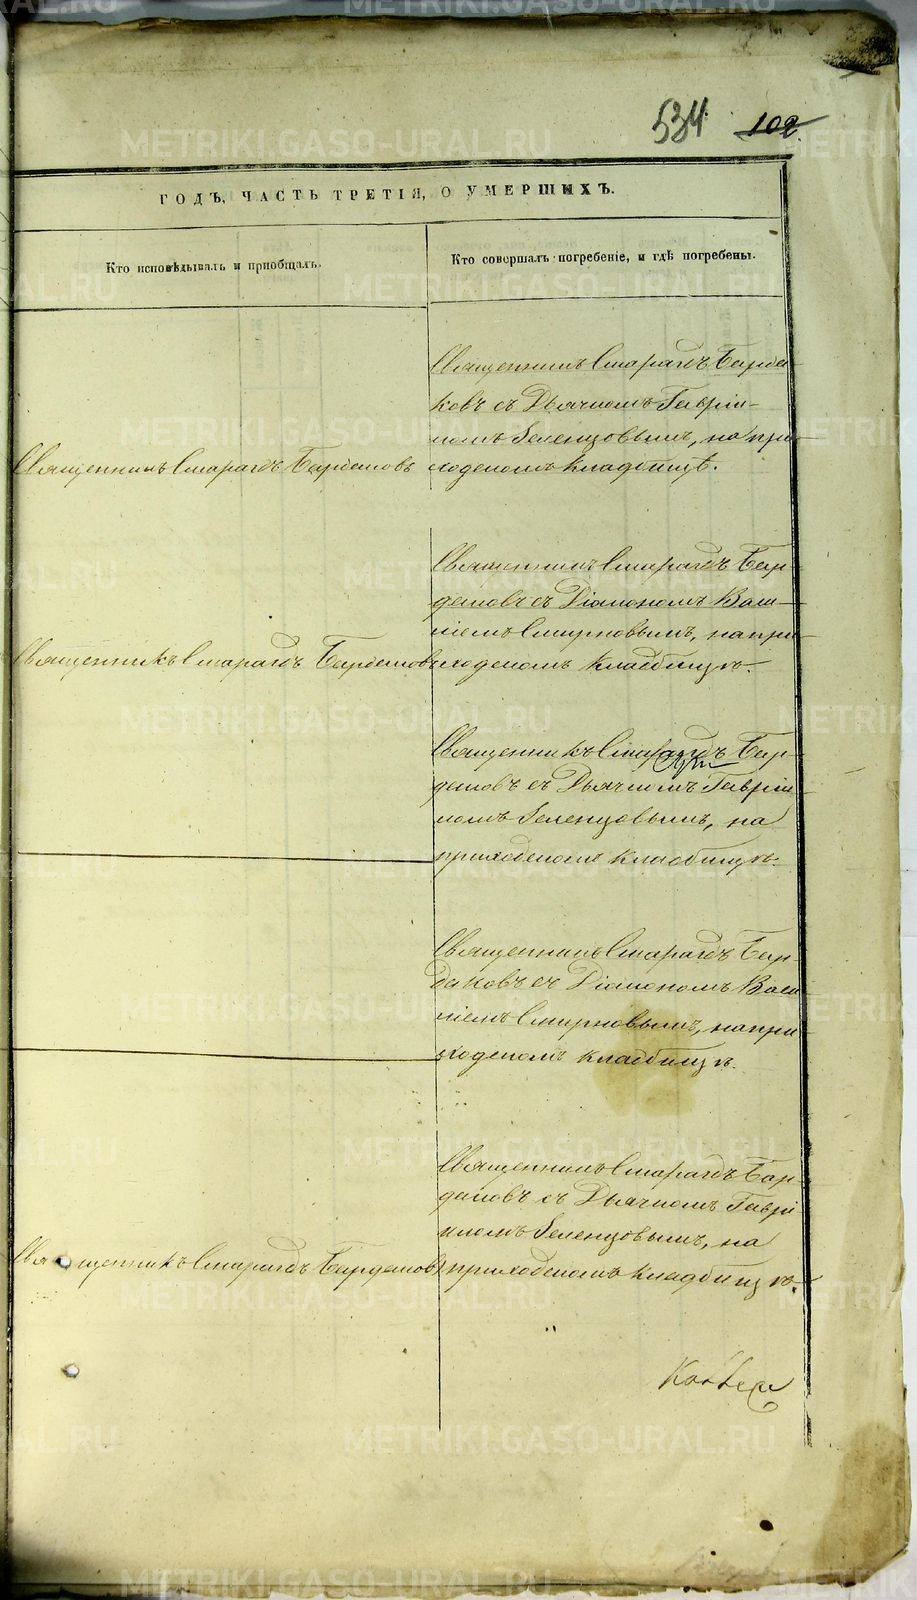 534 102
ГОДЪ, ЧАСТЬ ТРЕТІЯ, О УМЕРШИХЪ.
Кто исповѣдывалъ и пріобщалъ.
Кто совершалъ погребеніе, и гдѣ погребены.
Священникъ Смарагдъ Бардаковъ
Священникъ Смарагдъ Барда-
ковъ съ Дьячкомъ Гаврі-
иломъ Зеленцовымъ, на при-
ходскомъ кладбищѣ.
Священникъ Смарагдъ Бардаковъ
Священникъ Смарагдъ Бар-
даковъ съ Діакономъ Васи-
ліемъ Смирновымъ, на при-
ходскомъ кладбищѣ.
Священникъ Смарагдъ Бар-
даковъ съ Дьячкомъ Гаврі-
иломъ Зеленцовымъ, на
приходскомъ кладбищѣ.
Священникъ Смарагдъ Бар-
даковъ съ Діакономъ Васи-
ліемъ Смирновымъ, на при-
ходскомъ кладбищѣ.
Священникъ Смарагдъ Бардаковъ
Священникъ Смарагдъ Бар-
даковъ съ Дьячкомъ Гаврі-
иломъ Зеленцовымъ, на
приходскомъ кладбищѣ.
METRIKI.GASO-URAL.RU